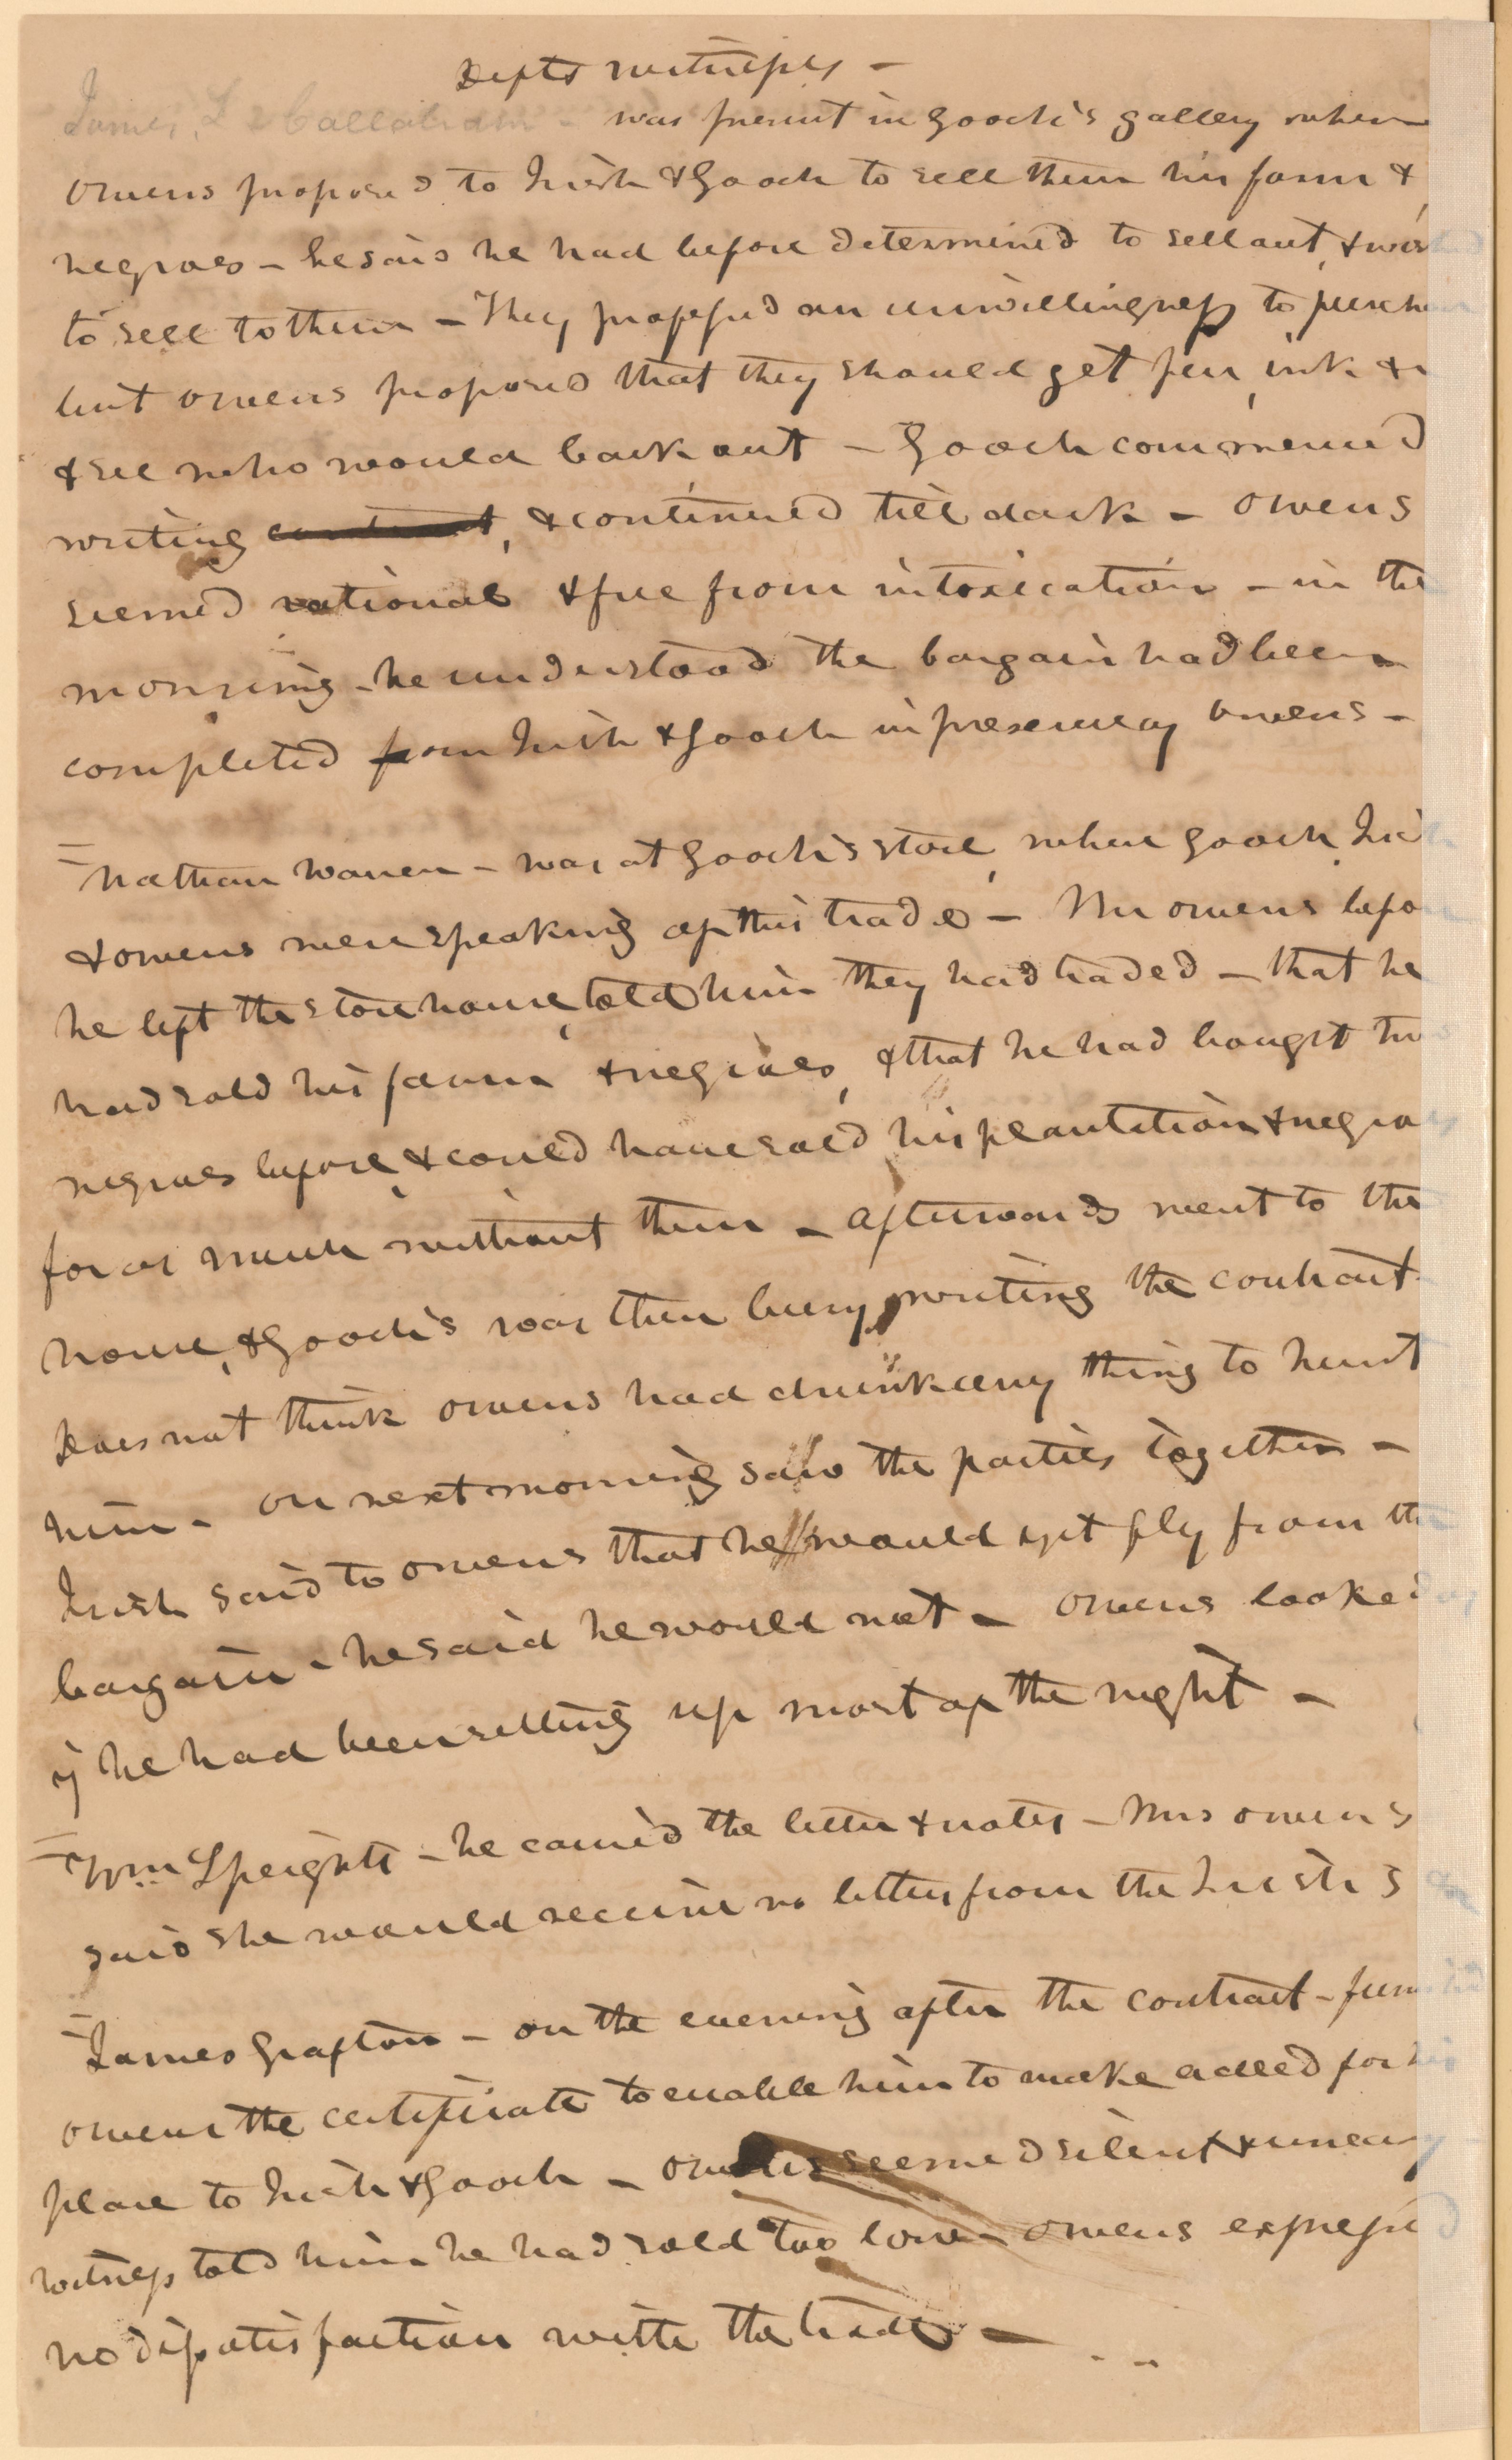 Defts witnesses -
James. L Callaham - was present in Gooch's gallery when
Owens proposed to Irish & Gooch to sell them his farm &
negroes - he said he had before determined to sell out, &
to sell to them - They professed an unwillingness to purchase
but Owens proposed that they should get pen, ink &
& see who would back out - Gooch commenced
writing contract, & continued till dark - Owens
seemed rational & free from intoxication - in the
morning - he understood the bargain had been
completed from Irish & Gooch in presence of Owens -
Nathan Warren - was at Gooch's store, when Gooch, Irish
& Owens were speaking of this trade - Mr Owens before
he left the store house, told him they had traded - that he
had sold his farm & negroes, & that he had bought two
negroes before, & could have sold his plantation & negroes
for as much without them - afterwards went to the
house, & Gooch's was then busy, writing the contract
Does not think Owens had drunk any thing to hurt
him - on next morning saw the parties together -
Irish said to Owens that he would yet fly from the
bargain - he said he would not - Owens looked as
if he had been setting up most of the night -
Wm Speights - he carried the letter & notes - Mrs Owens
said she would receive no letters from the Irish's
James Grafton - on the evening after the contract -
Owens the certificate to enable him to make a deed for his
place to Irish & Gooch - Owens seemed silent & uneasy
witness told him he had sold too low - Owens expressed
no dissatisfaction with the trade -